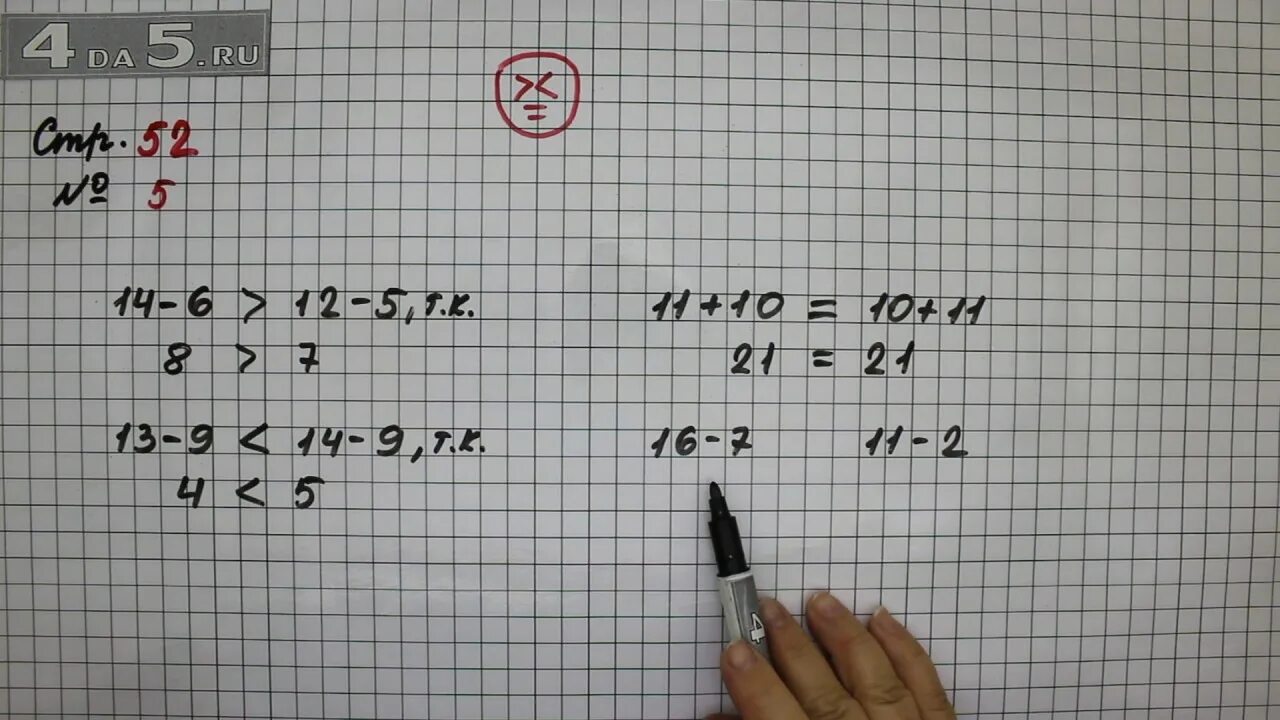 4 DA 5.RU
> <
=
Стр. 52
№ 5
14-6 > 12-5, т.к.
8 > 7
13-9 < 14-9, т.к.
4 < 5
11+10 = 10+11
21 = 21
16-7 11-2
4